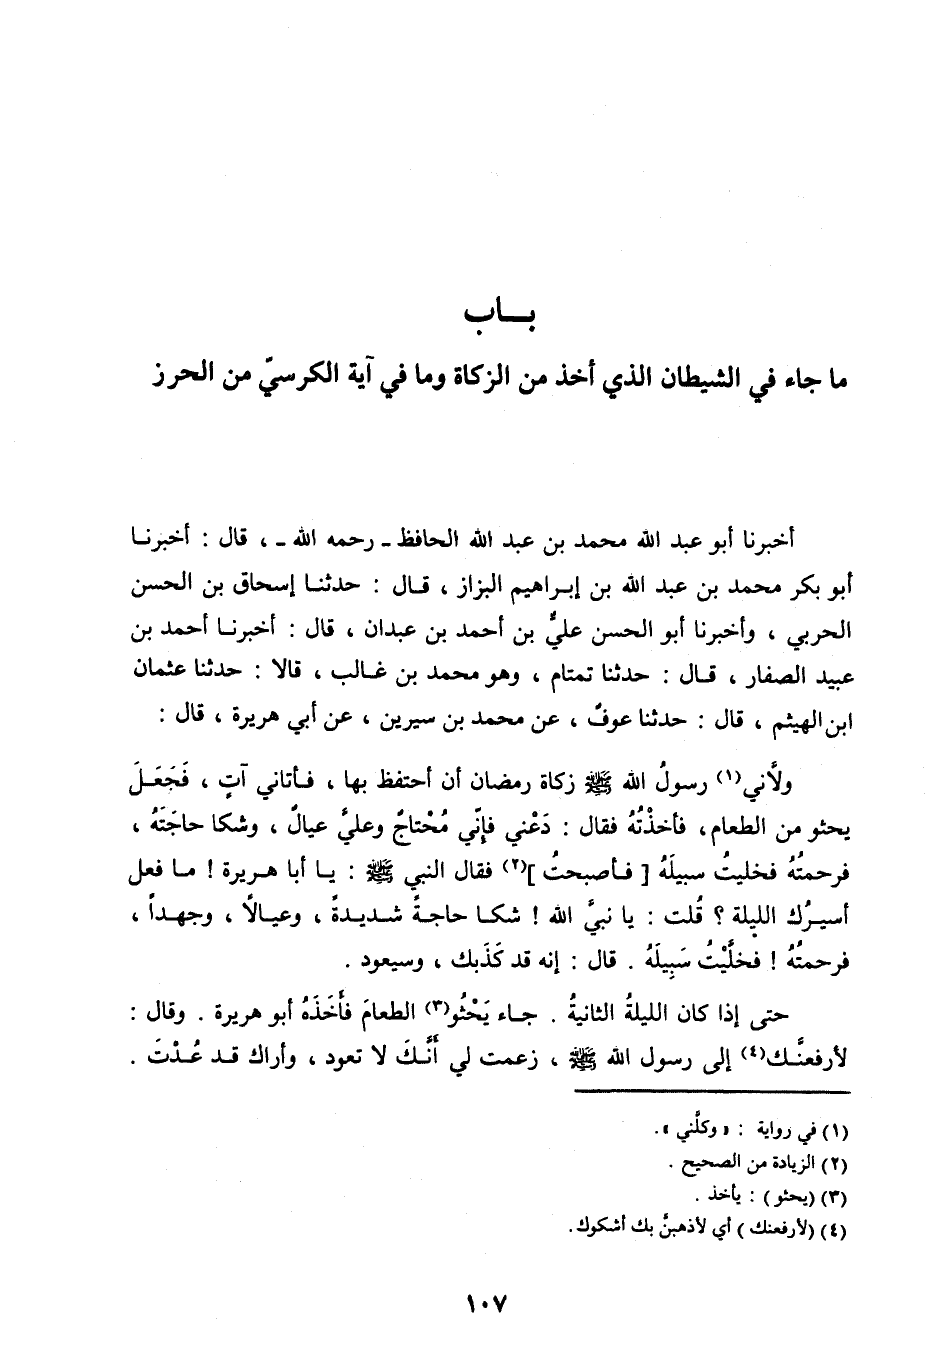 بـــاب
ما جاء في الشيطان الذي أخذ من الزكاة وما في آية الكرسيّ من الحرز
أخبرنا أبو عبد الله محمد بن عبد الله الحافظ ـ رحمه الله ـ ، قال : أخبرنـا
أبو بكر محمد بن عبد الله بن إبـراهيم البزاز ، قـال : حدثنـا إسحاق بن الحسن
الحربي ، وأخبرنا أبو الحسن عليُّ بن أحمد بن عبدان ، قال : أخبرنـا أحمد بن
عبيد الصفار ، قـال : حدثنا تمتام ، وهو محمد بن غـالب ، قالا : حدثنا عثمان
ابن الهيثم ، قال : حدثنا عوفٌ ، عن محمد بن سيرين ، عن أبي هريرة ، قال :
ولَّاني(١) رسولُ الله ﷺ زكاة رمضان أن أحتفظ بها ، فـأتاني آتٍ ، فَجَعَـلَ
يحثو من الطعام، فأخذْتُهُ فقال : دَعْني فإنّي مُحْتاجٌ وعليَّ عيالٌ ، وشكا حاجَتَهُ ،
فرحمتُهُ فخليتُ سبيلَهُ [ فـأصبحتُ ](٢) فقال النبي ﷺ : يـا أبا هـريرة ! مـا فعل
أسيـرُك الليلة ؟ قُلت : يا نبيَّ الله ! شكـا حاجـةً شـديـدةً ، وعيـالًا ، وجهـداً ،
فرحمتُهُ ! فخلَّيْتُ سَبِيلَهُ . قال : إنه قد كَذَبك ، وسيعود .
حتى إذا كان الليلةُ الثانيةُ . جـاء يَحْثُو(٣) الطعامَ فأَخَذَهُ أبو هريرة . وقال :
لأرفعنَّـك(٤) إلى رسول الله ﷺ ، زعمت لي أَنَّـكَ لا تعود ، وأراك قـد عُـدْتَ .
(١) في رواية : «وكلَّني» .
(٢) الزيادة من الصحيح .
(٣) (يحثو) : يأخذ .
(٤) (لأرفعنك) أي لأذهبنَّ بك أشكوك .
١٠٧